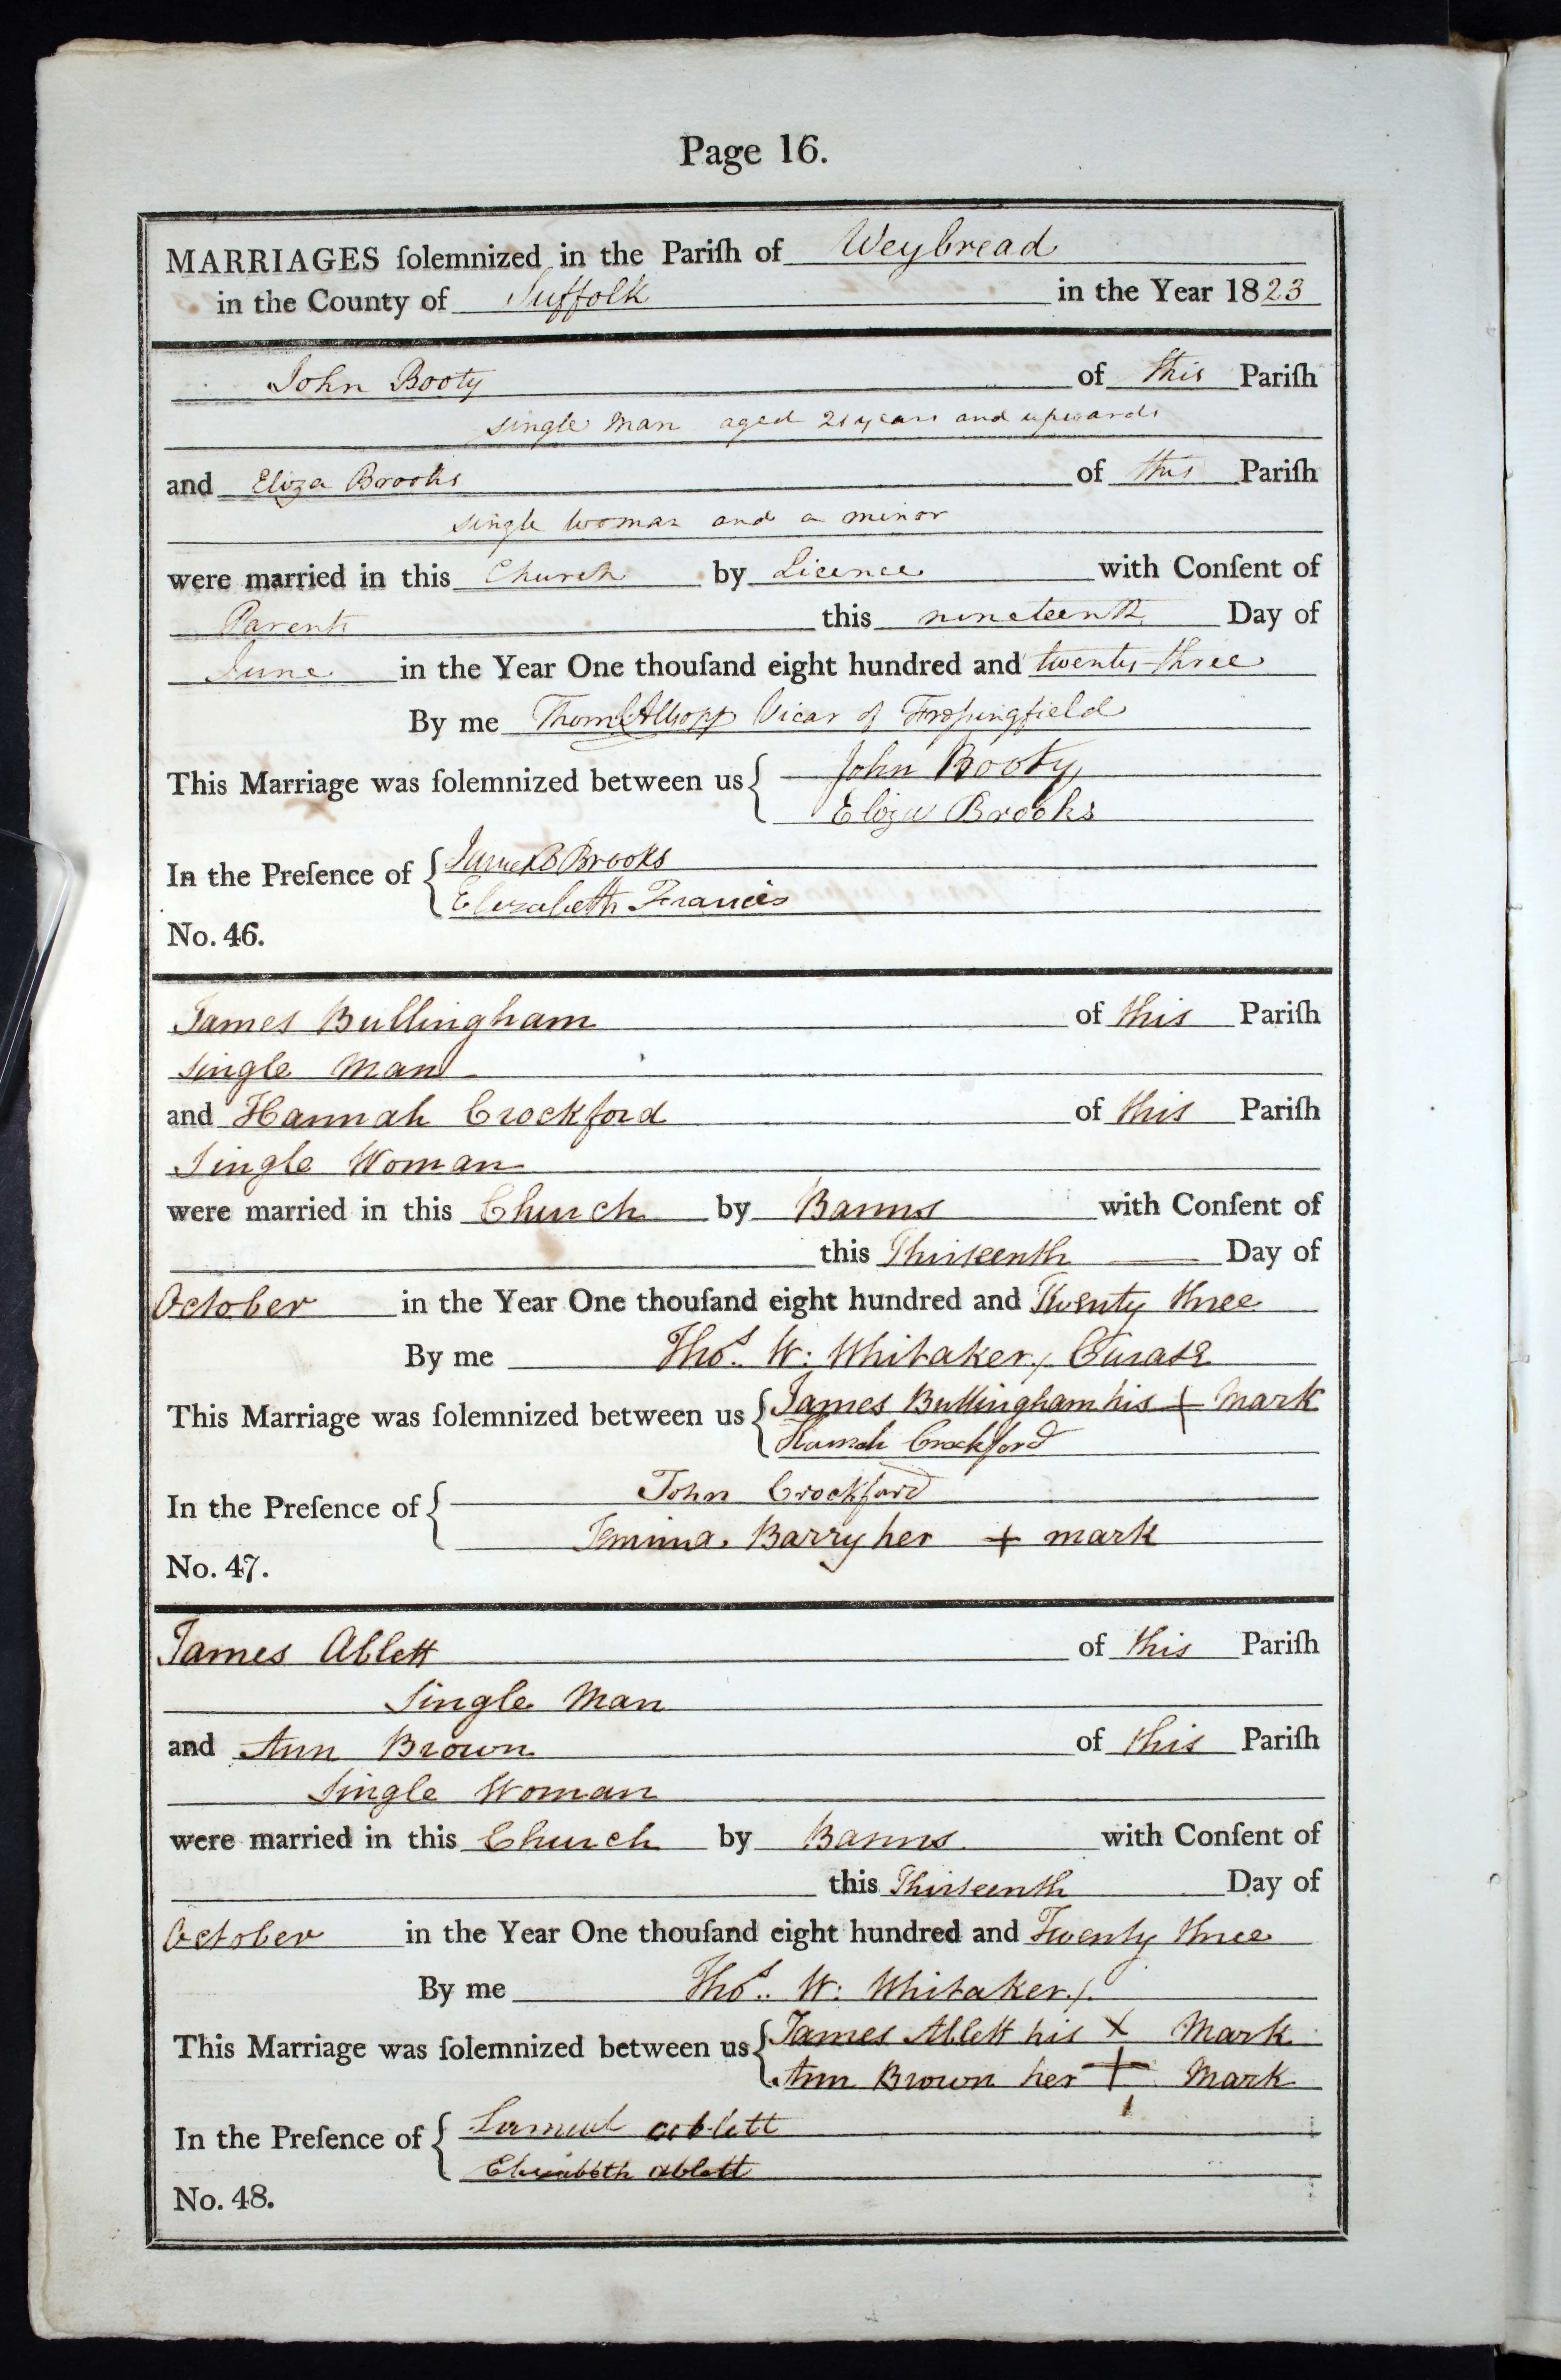 Page 16.
MARRIAGES ſolemnized in the Pariſh of Weybread
in the County of Suffolk in the Year 1823
John Booty of this Pariſh
single Man aged 21 years and upwards
and Eliza Brooks of this Pariſh
single woman and a minor
were married in this Church by Licence with Conſent of
Parents this nineteenth Day of
June in the Year One thouſand eight hundred and twenty-three
By me Allsopp Vicar of Fressingfield
This Marriage was ſolemnized between us { John Booty
Eliza Brooks
In the Preſence of { James B Brooks
Elizabeth Francis
No. 46.
James Bullingham of this Pariſh
Single Man
and Hannah Crockford of this Pariſh
Single Woman
were married in this Church by Banns with Conſent of
this Thirteenth Day of
October in the Year One thouſand eight hundred and Twenty three
By me Thos. W: Whitaker, Curate
This Marriage was ſolemnized between us { James Bullingham his + Mark
Hannah Crockford
In the Preſence of { John Crockford
Jemima Barry her + mark
No. 47.
James Ablett of this Pariſh
Single Man
and Ann Brown of this Pariſh
Single Woman
were married in this Church by Banns with Conſent of
this Thirteenth Day of
October in the Year One thouſand eight hundred and Twenty three
By me Thos. W: Whitaker
This Marriage was ſolemnized between us { James Ablett his X Mark
Ann Brown her + Mark
In the Preſence of { Samuel ablett
Elizabeth ablett
No. 48.